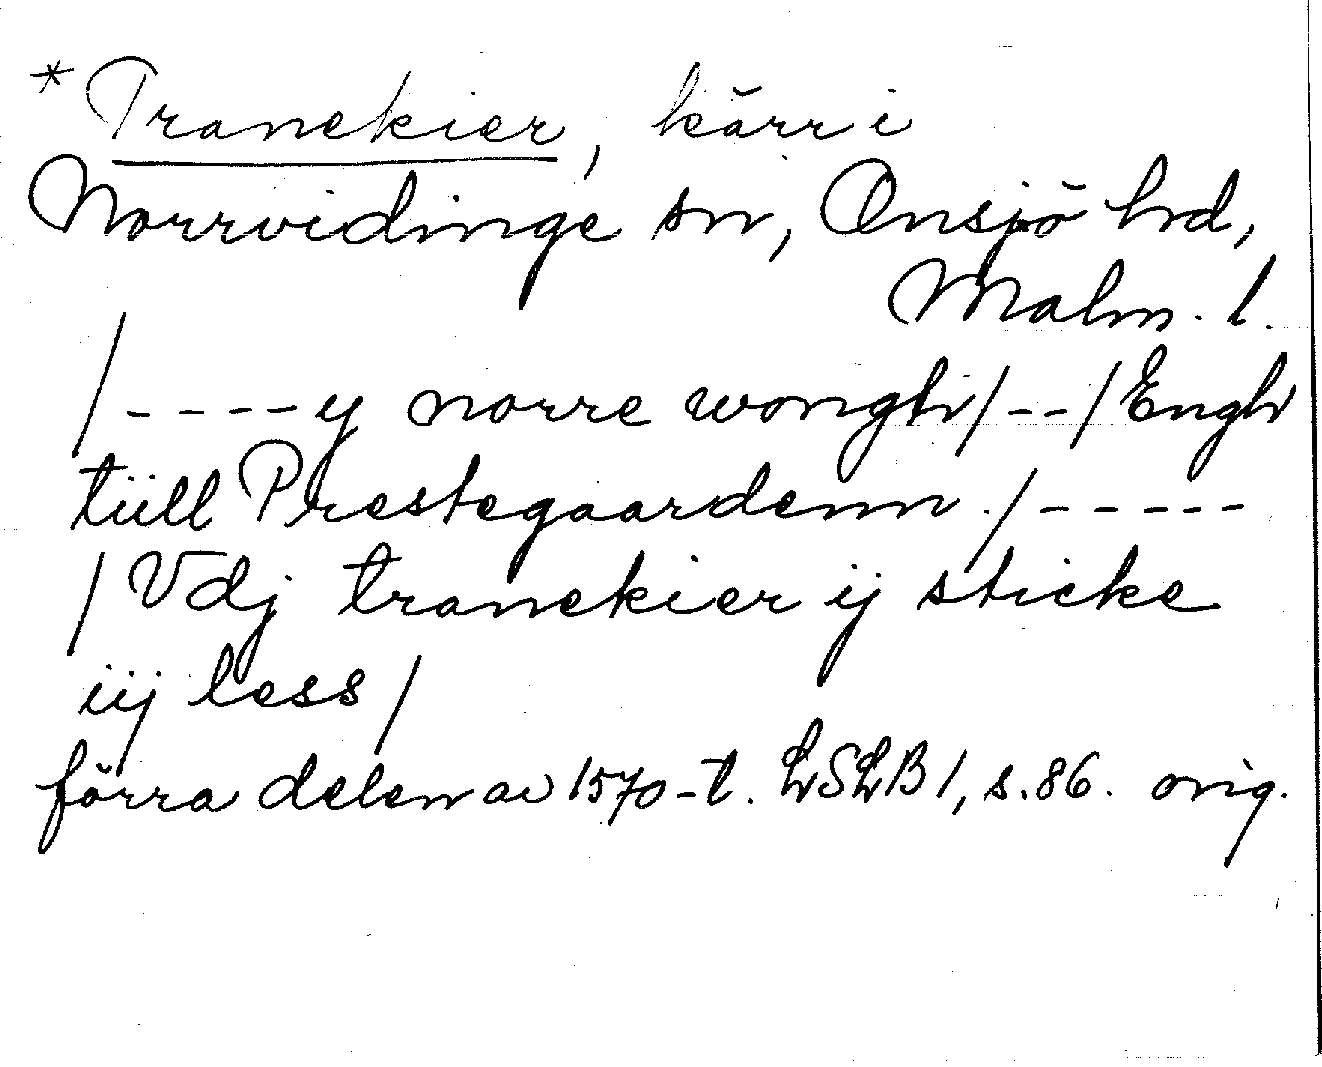 * Tranekier, kärr i
Norrvidinge sn, Onsjö hd,
Malm. l.
/----y norre wongh/--/Engh
tüll Prestegaardenn./-----
/Vdj tranekier ij sticke
iij less/
förra delen av 1570-t. LSLB 1, s. 86. orig.